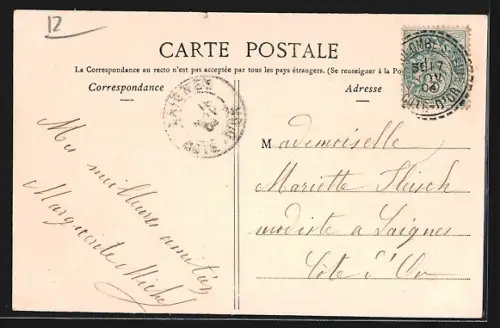 12
CARTE POSTALE
La Correspondance au recto n'est pas acceptée par tous les pays étrangers. (Se renseigner à la Po
Correspondance
Adresse
LAIGNES
Mes meilleures amitiés
Marguerite Michel
Mademoiselle
Mariette
modiste à Laignes
Côte d'Or
CÔTE-D'OR